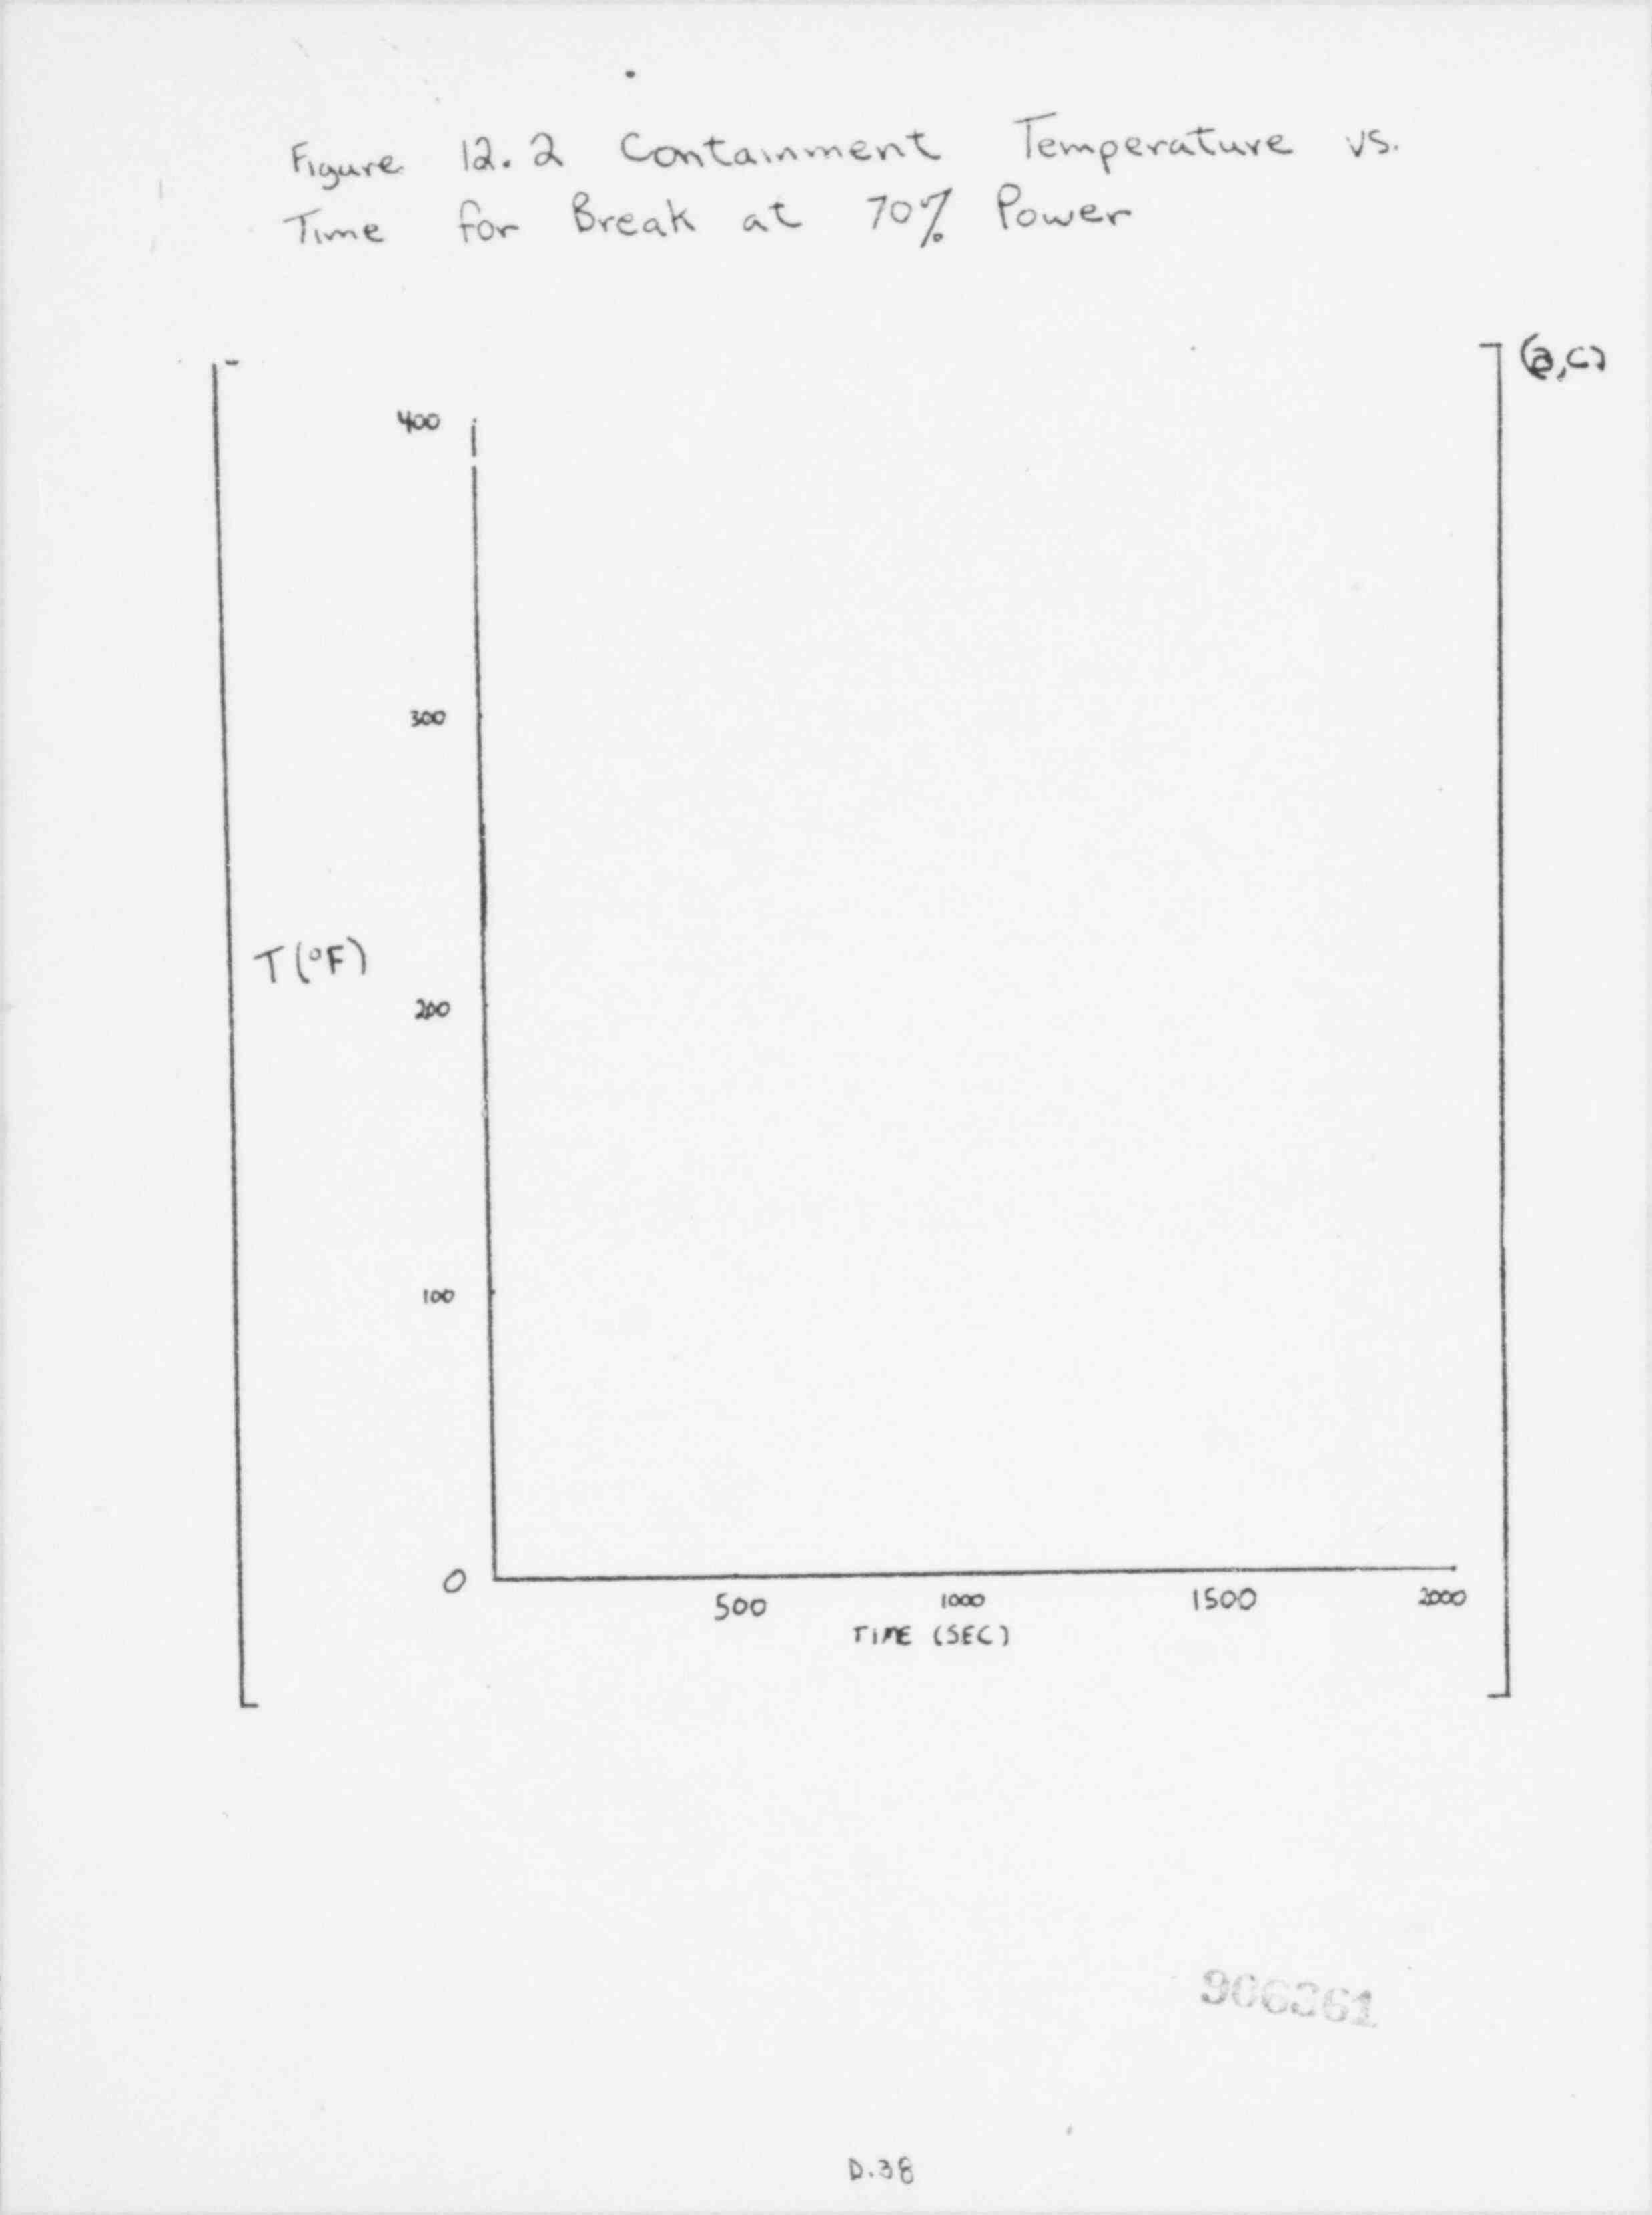 Figure 12.2 Containment Temperature vs.
Time for Break at 70% Power
(a,c)
400
300
T(°F)
200
100
0
500 1000 1500 2000
TIME (SEC)
906361
D.38